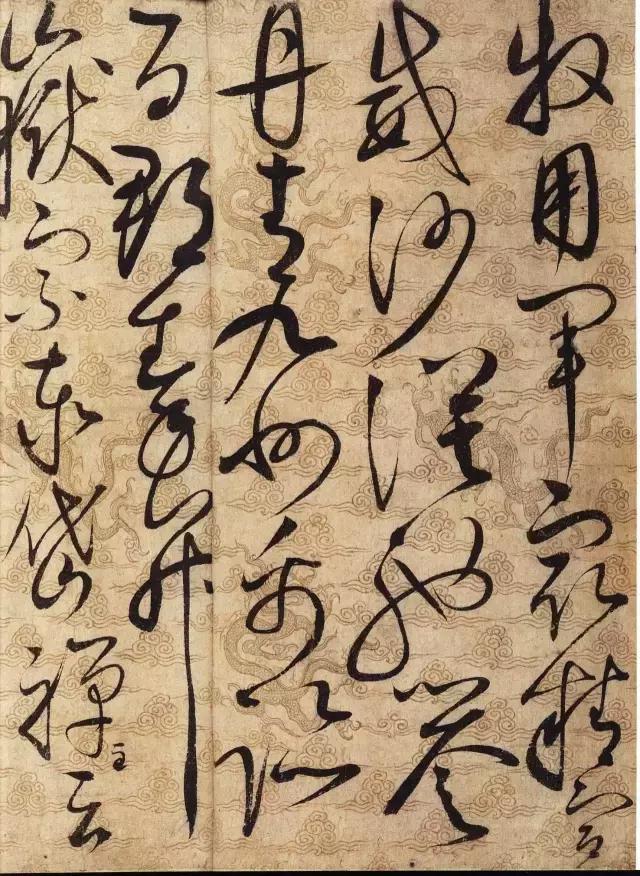 牧用軍最精宣
威沙漠馳譽
丹青九州禹跡
百郡秦并
嶽宗泰岱禪主云